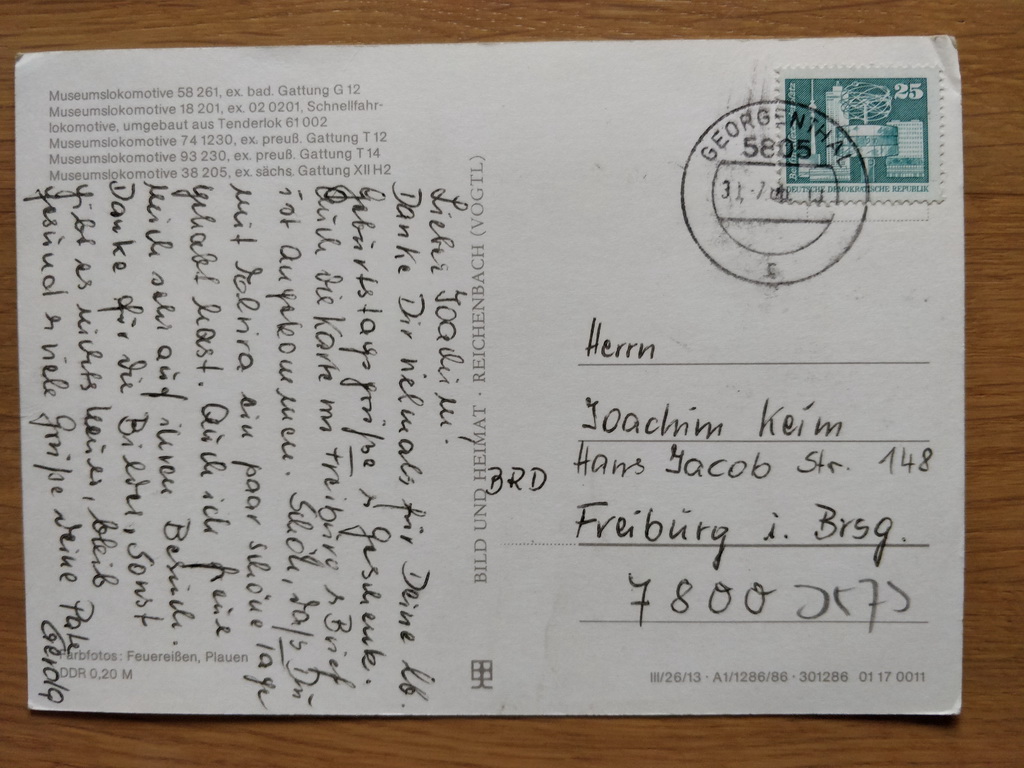 Museumslokomotive 58 261, ex. bad. Gattung G 12
Museumslokomotive 18 201, ex. 02 0201, Schnellfahr-
lokomotive, umgebaut aus Tenderlok 61 002
Museumslokomotive 74 1230, ex. preuß. Gattung T 12
Museumslokomotive 93 230, ex. preuß. Gattung T 14
Museumslokomotive 38 205, ex. sächs. Gattung XII H2
Lieber Joachim.
Danke Dir vielmals für Deine lb.
Geburtstagsgrüße u Geschenk.
Auch die Karte von Freiburg u Brief
ist angekommen. Schön, daß Du
mit ein paar schöne Tage
gehabt hast. Auch ich freue
mich sehr auf ihren Besuch.
Danke für die Bilder, Sonst
gibt es nichts neues, bleib
gesund u viele Grüße deine Pate
Gerda
Farbfotos: Feuereißen, Plauen
DDR 0,20 M
BILD UND HEIMAT · REICHENBACH (VOGTL)
GEORGENTHAL
5805
25
DEUTSCHE DEMOKRATISCHE REPUBLIK
Herrn
Joachim Keim
Hans Jacob Str. 148
BRD
Freiburg i. Brsg.
7800
III/26/13 · A1/1286/86 · 301286 01 17 0011